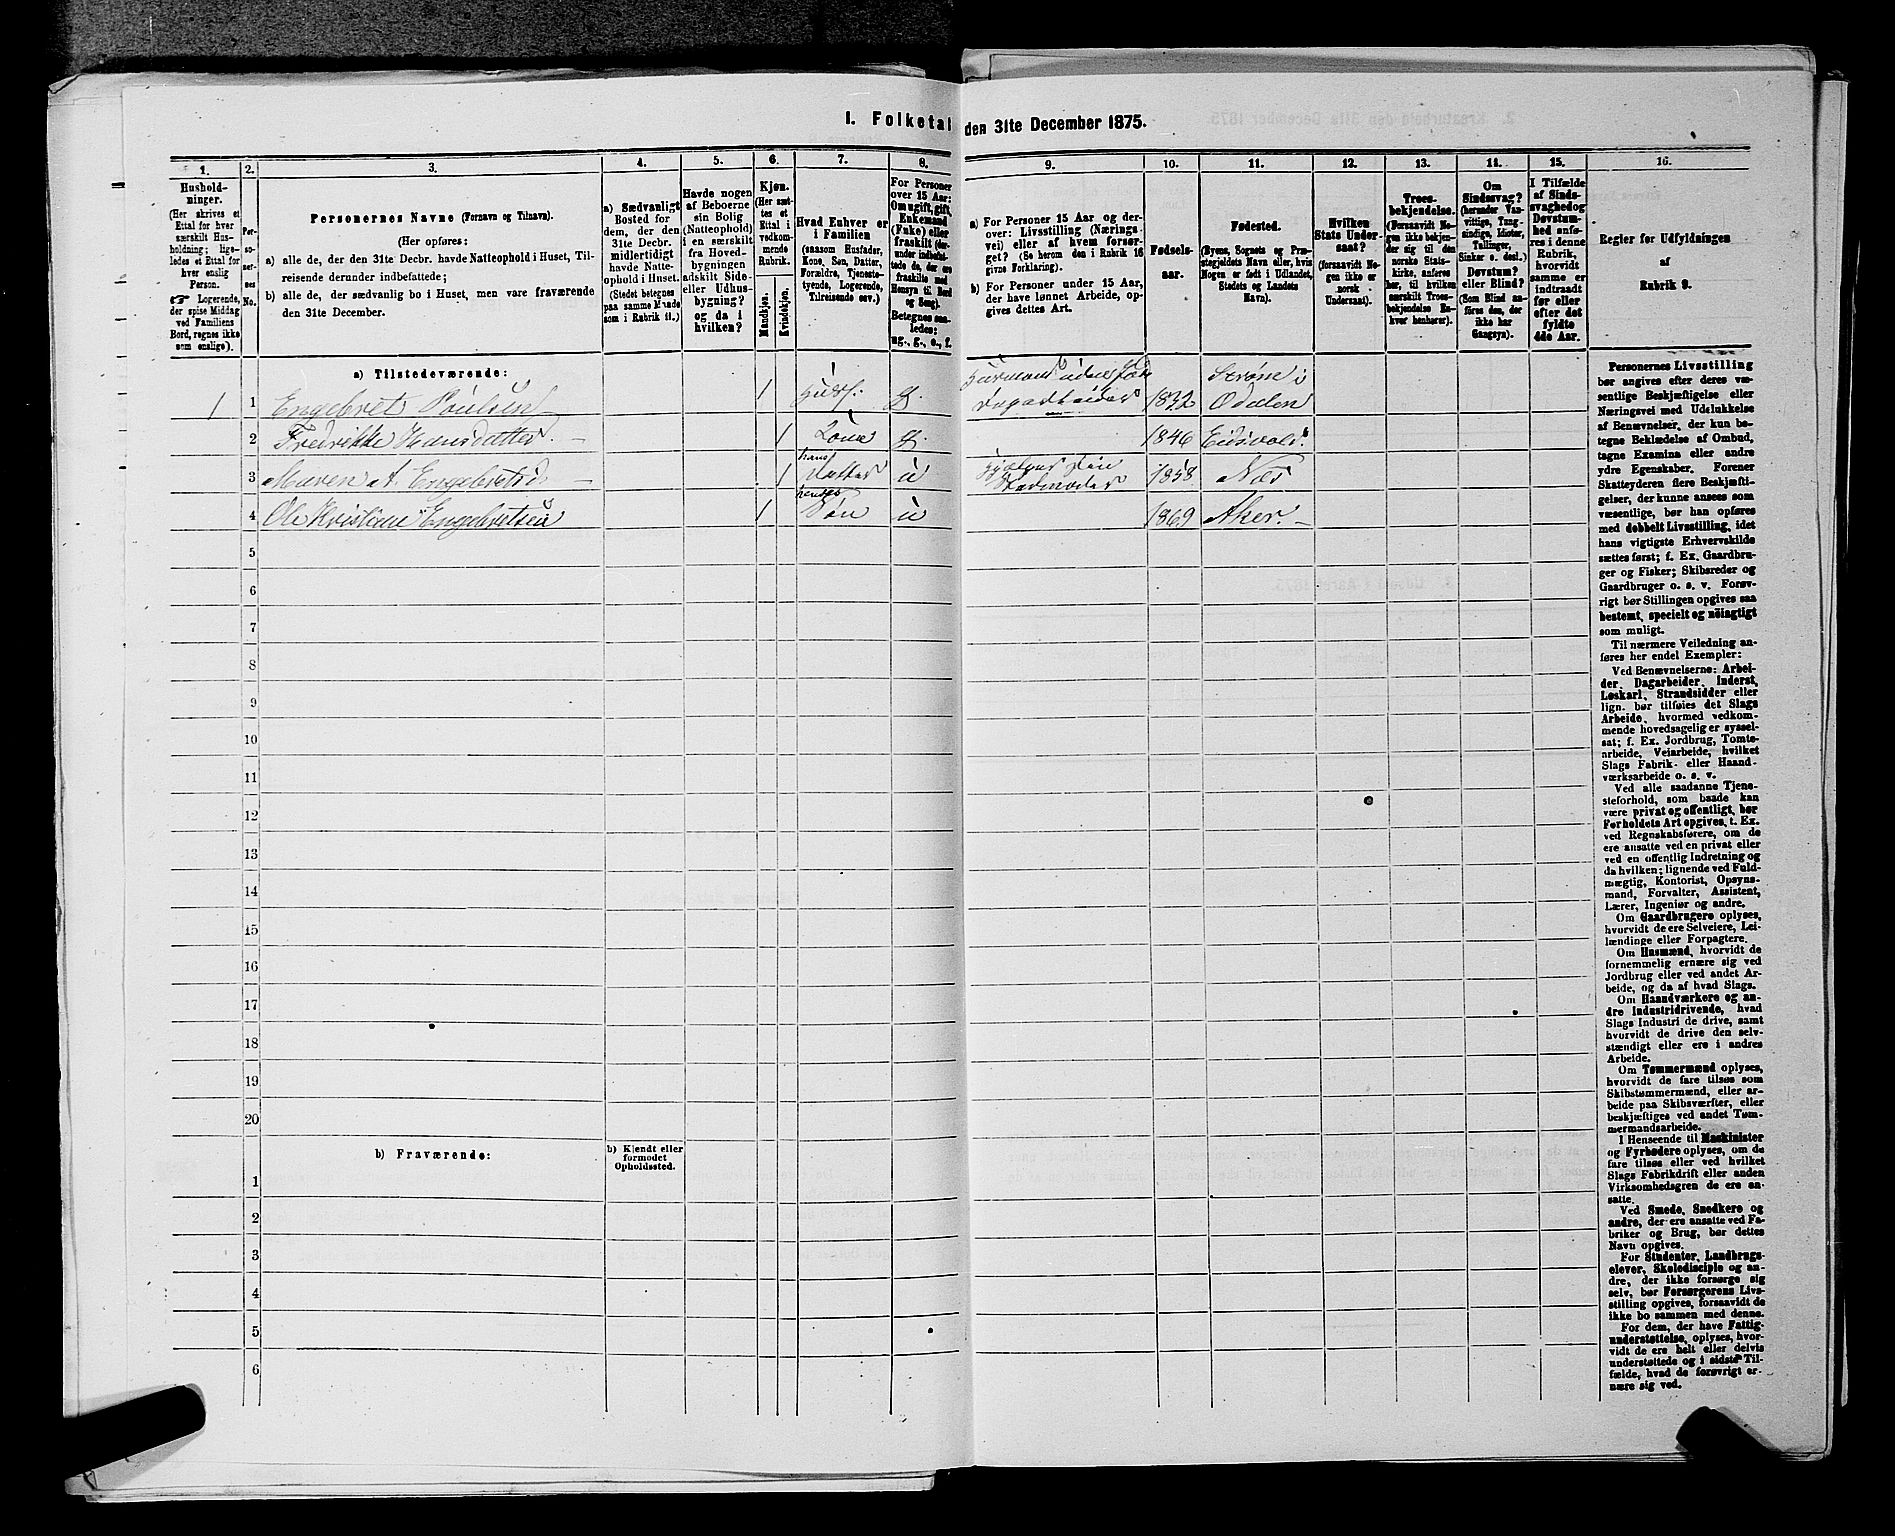 1. Folketal den 31te December 1875.
1.
2.
3.
4.
5.
6.
7.
8.
9.
10.
11.
12.
13.
14.
15.
16.
Hushold-
ninger.
(Her skrives et
Ettal for hver
særskilt Hus-
holdning; lige-
ledes et Ettal for
hver enslig
Person.
Logerende,
der spise Middag
ved Familiens
Bord, regnes ikke
som enslige).
Per-
so-
ner-
nes
No.
Personernes Navne (Fornavn og Tilnavn).
(Her opføres:
a) alle de, der den 31te Decbr. havde Natteophold i Huset, Til-
reisende derunder indbefattede;
b) alle de, der sædvanlig bo i Huset, men vare fraværende
den 31te December.
a) Sædvanligt
Bosted for
dem, der den
31te Decbr.
midlertidigt
havde Natte-
ophold i Huset.
(Stedet betegnes
paa samme Maade
som i Rubrik 11.)
Havde nogen
af Beboerne
sin Bolig
(Natteophold)
i en særskilt
fra Hoved-
bygningen
adskilt Side-
eller Udhus-
bygning?
og da i
hvilken?
Kjøn.
(Her sæt-
tes et
Ettal i
vedkom-
mende
Rubrik.
Mandkjøn.
Kvindekjøn.
Hvad Enhver er
i Familien
(saasom Husfader,
Kone, Søn, Datter,
Forældre, Tjeneste-
tyende, Logerende,
Tilreisende osv.)
For Personer
over 15 Aar:
Om ugift, gift,
Enkemand
(Enke) eller
fraskilt
Betegnes saa-
ledes:
ug., g., e., f.
a) For Personer 15 Aar og der-
over: Livsstilling (Nærings-
vei) eller af hvem forsør-
get? (Se herom den i Rubrik 16
givne Forklaring).
b) For Personer under 15 Aar,
der have lønnet Arbeide, op-
gives dettes Art.
Fødsels-
aar.
Fødested.
(Byens, Sognets og Præ-
stegjeldets Navn eller, hvis
Nogen er født i Udlandet,
Stedets og Landets
Navn).
Hvilken
Stats Under-
saat?
(forsaavidt No-
gen ikke er
norsk
Undersaat).
Troes-
bekjendelse.
(Forsaavidt No-
gen ikke bekjen-
der sig til den
norske Stats-
kirke, anføres
her, til hvilken
særskilt Troes-
bekjendelse En-
hver henhører).
Om
Sindssvag?
(herunder Van-
vittige, Tung-
sindige, Idioter,
Tullinger,
Sinker o. desl.)
Døvstum?
eller Blind?
(Som Blind an-
føres den, der
ikke har
Gangsyn).
I Tilfælde
af Sinds-
svaghed og
Døvstum-
hed anfø-
res i denne
Rubrik,
hvorvidt
samme er
indtraadt
før eller
efter det
fyldte
4de Aar.
Regler for Udfyldningen
af
Rubrik 9.
a) Tilstedeværende:
1 1 Engebret Poulsen 1 Husf. g. Dagarbeider 1832 Odalen
2 Fredrikke Hansdatter 1 Kone g. 1846 Eidsvold
3 Maren A. Engebretsd. 1 hans Datter u 1858 Næs
4 Ole Kristian Engebretsen 1 Søn u 1869 Aker.
5
6
7
8
9
10
11
12
13
14
15
16
17
18
19
20
b) Fraværende:
b) Kjendt eller
formodet
Opholdssted.
1
2
3
4
5
6
Personernes Livsstilling
bør angives efter deres væ-
sentlige Beskjæftigelse eller
Næringsvei med Udelukkelse
af Benævnelser, der kun be-
tegne Beklædelse af Ombud,
tagne Examina eller andre
ydre Egenskaber. Forener
Skatteyderen flere Beskjæfti-
gelser, der kunne ansees som
væsentlige, bør han opføres
med dobbelt Livsstilling, idet
hans vigtigste Erhvervskilde
sættes først; f. Ex. Gaardbru-
ger og Fisker; Skibsreder og
Gaardbruger o. s. v. Forøv-
rigt bør Stillingen opgives saa
bestemt, specielt og nøiagtigt
som muligt.
Til nærmere Veiledning an-
føres her endel Exempler:
Ved Benævnelserne: Arbei-
der, Dagarbeider, Inderst,
Løskarl, Strandsidder eller
lign. bør tilføies det Slags
Arbeide, hvormed vedkom-
mende hovedsagelig er syssel-
sat; f. Ex. Jordbrug, Tomte-
arbeide, Veiarbeide, hvilket
Slags Fabrik- eller Haand-
værksarbeide o. s. v.
Ved alle saadanne Tjene-
steforhold, som baade kan
være privat og offentligt, bør
Forholdets Art opgives, t. Ex.
ved Regnskabsførere, om de
ere ansatte ved en privat eller
ved en offentlig Indretning og
da hvilken; lignende ved Fuld-
mægtig, Kontorist, Opsyns-
mand, Forvalter, Assistent,
Lærer, Ingeniør og andre.
Om Gaardbrugere oplyses,
hvorvidt de ere Selveiere, Lei-
lændinge eller Forpagtere.
Om Husmænd, hvorvidt de
fornemmelig ernære sig ved
Jordbrug eller ved andet Ar-
beide, og da af hvad Slags.
Om Haandværkere og an-
dre Industridrivende, hvad
Slags Industri de drive, samt
hvorvidt de drive den selv-
stændigt eller ere i andres
Arbeide.
Om Tømmermænd oplyses,
hvorvidt de fare tilsøs som
Skibstømmermænd, eller ar-
beide paa Skibsværfter, eller
beskjæftiges ved andet Tøm-
mermandsarbeide.
I Henseende til Maskinister
og Fyrbødere oplyses, om de
fare tilsøs eller ved hvilket
Slags Fabrikdrift eller anden
Virksomhedsgren de ere an-
satte.
Ved Smede, Snedkere og
andre, der ere ansatte ved Fa-
briker og Brug, bør dettes
Navn opgives.
For Studenter, Landbrugs-
elever, Skoledisciple og an-
dre, der ikke forsørge sig
selv, bør Forsørgerens Livs-
stilling opgives, forsaavidt de
ikke bo sammen med denne.
For dem, der have Fattig-
understøttelse, oplyses, hvor-
vidt de ere helt eller delvis
understøttede og i sidste Til-
fælde, hvad de forøvrigt er-
nære sig ved.